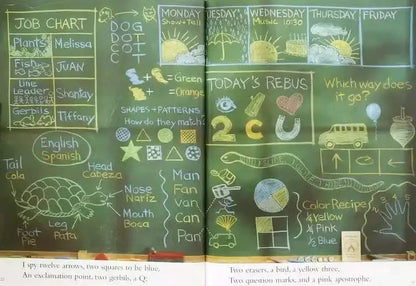 JOB CHART
Plants Melissa
Fish JuAN
Line Leader Shantay
Gerbils Tiffany
English
Spanish
Tail
Cola
Head
Cabeza
Leg
Pata
Foot
Pie
DOG
DOT
COT
= Green
= Orange
SHAPES + PATTERNS
How do they match?
Nose
Nariz
Mouth
Boca
Man
Fan
Van
Can
Pan
MONDAY
Show + Tell
TUESDAY
WEDNESDAY
Music 10:30
THURSDAY
FRIDAY
TODAY'S REBUS
2 C U
Which way does it go?
Color Recipe
Yellow
Pink
Blue
I spy twelve arrows, two squares to be blue,
An exclamation point, two gerbils, a Q;
Two erasers, a bird, a yellow three,
Two question marks, and a pink apostrophe.